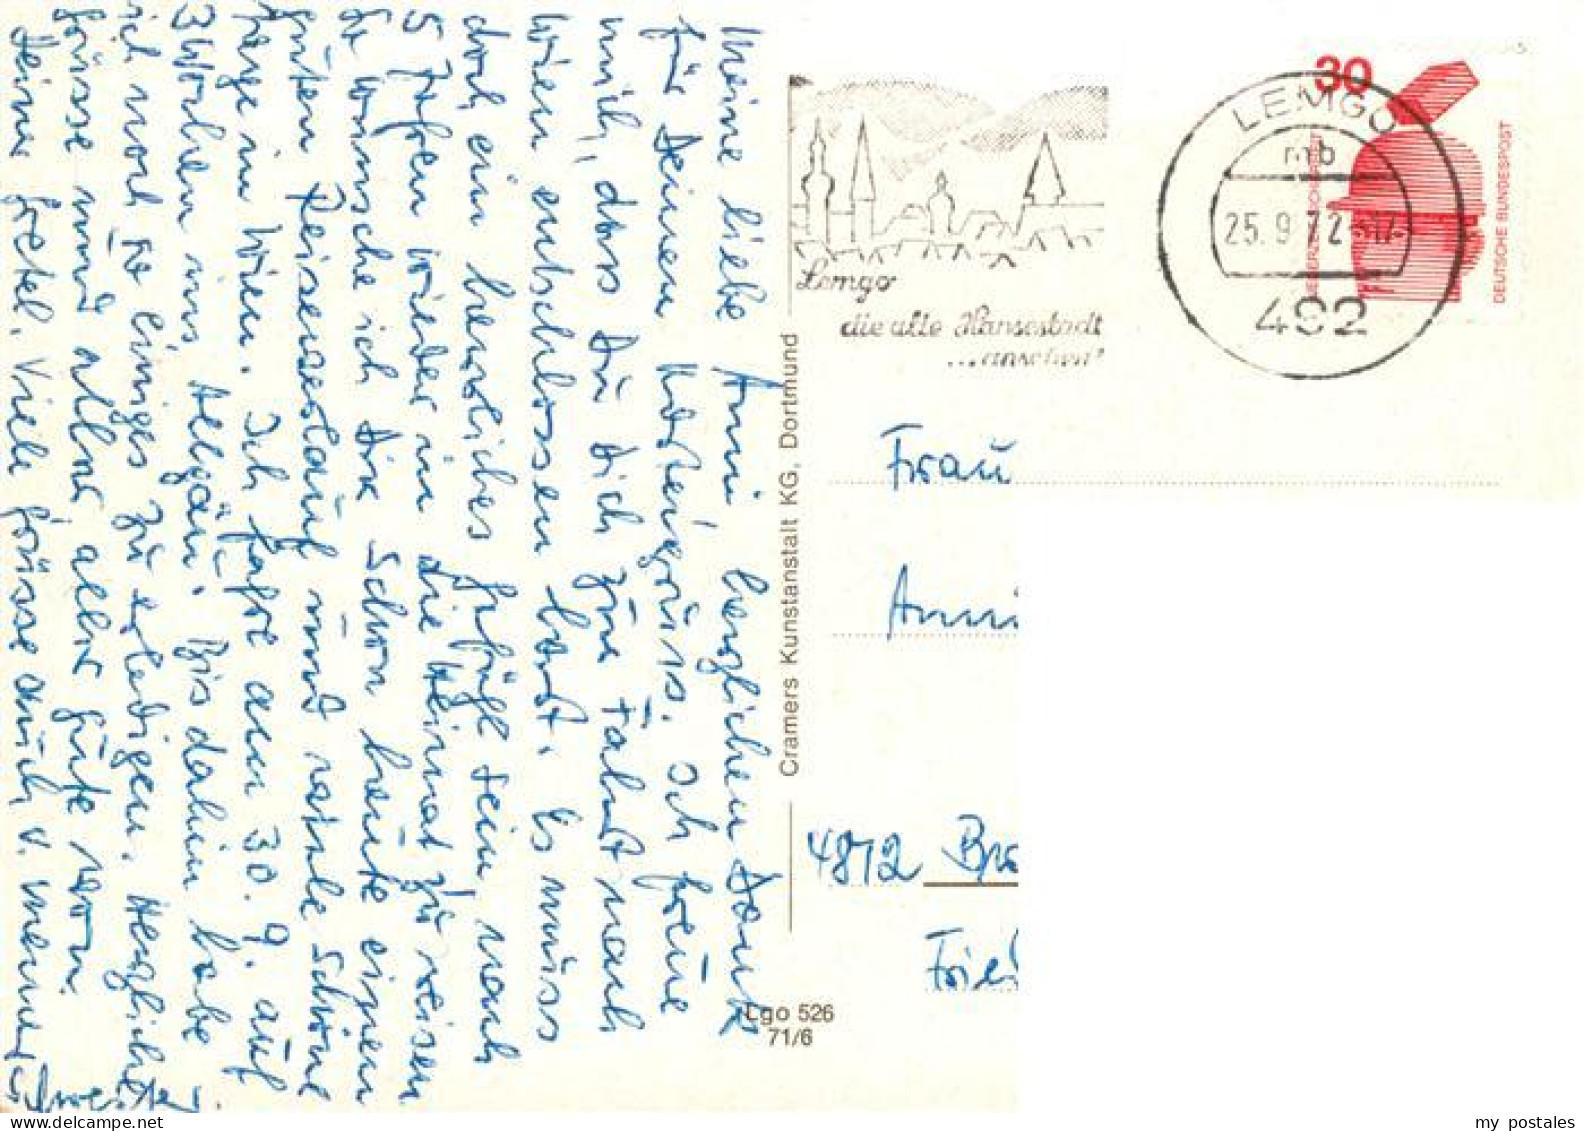 Meine liebe Anni, herzlichen Dank
für Deinen Kartengruss. Ich freue
mich, dass Du Dich zur Fahrt nach
Wien entschlossen hast. Es muss
doch ein herrliches Gefühl sein, nach
5 Jahren wieder in die Heimat zu reisen
So wünsche ich Dir schon heute einen
guten Reiseverlauf und viele schöne
Tage in Wien. Ich fahre am 30. 9. auf
3 Wochen ins Allgäu. Bis dahin habe
ich noch so einiges zu erledigen. Herzlichste
Grüsse und alles alles gute von
Deiner Gretel. Viele Grüsse auch v. meiner
Cramers Kunstanstalt KG, Dortmund
Lgo 526
71/6
Lemgo
die alte Hansestadt
...ansehen!
30
DEUTSCHE BUNDESPOST
LEMGO
mb
25.9.72-17
492
Frau
Anni
4812 Br
Fried
my postales